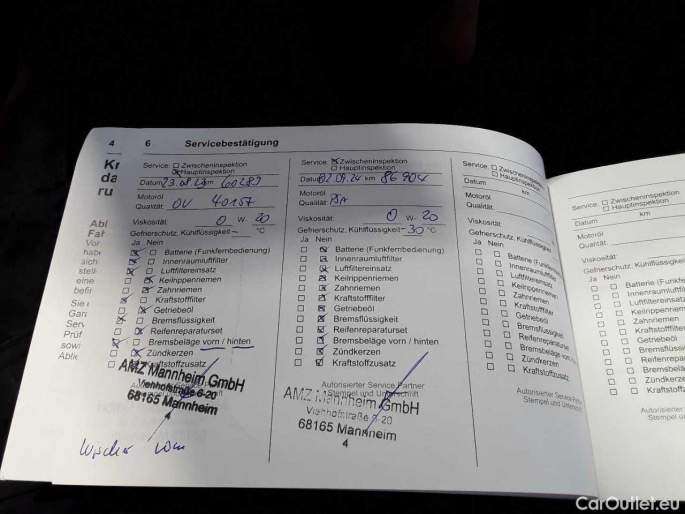 4
6 Servicebestätigung
Kr
da
ru
Abl
Fah
Vor
habe
sich
stell
eine
befir
Sie
Gara
Serv
Prüf
sowi
Able
Service: Zwischeninspektion
Hauptinspektion
Datum km 60289
Motoröl
Qualität OV 40157
Viskosität: 0 W- 20
Gefrierschutz, Kühlflüssigkeit °C
Ja Nein
Batterie (Funkfernbedienung)
Innenraumluftfilter
Luftfiltereinsatz
Keilrippenriemen
Zahnriemen
Kraftstofffilter
Getriebeöl
Bremsflüssigkeit
Reifenreparaturset
Bremsbeläge vorn / hinten
Zündkerzen
Kraftstoffzusatz
AMZ Mannheim GmbH
Viehhofstraße 6-20
68165 Mannheim
4
Wischer vorn
Service: Zwischeninspektion
Hauptinspektion
Datum 02.09.24 km 86904
Motoröl
Qualität PSA
Viskosität: 0 W- 20
Gefrierschutz, Kühlflüssigkeit -30 °C
Ja Nein
Batterie (Funkfernbedienung)
Innenraumluftfilter
Luftfiltereinsatz
Keilrippenriemen
Zahnriemen
Kraftstofffilter
Getriebeöl
Bremsflüssigkeit
Reifenreparaturset
Bremsbeläge vorn / hinten
Zündkerzen
Kraftstoffzusatz
Autorisierter Service Partner
Stempel und Unterschrift
AMZ Mannheim GmbH
Viehhofstraße 6-20
68165 Mannheim
4
Service: Zwischeninspektion
Hauptinspektion
Datum km
Motoröl
Qualität
Viskosität:
Gefrierschutz, Kühlflüssigkeit
Ja Nein
Batterie (Funkfern
Innenraumluftfilter
Luftfiltereinsatz
Keilrippenriemen
Zahnriemen
Kraftstofffilter
Getriebeöl
Bremsflüssigkeit
Reifenreparaturset
Bremsbeläge vorn
Zündkerzen
Kraftstoffzusatz
Autorisierter Service Par
Stempel und Unterschri
Service: Zwischeninspektion
Hauptinspektion
Datum km
Motoröl
Qualität
Viskosität:
Gefrierschutz, Kühlflüssigkei
Ja Nein
Batterie (Funkfer
Innenraumluftfilter
Luftfiltereinsatz
Keilrippenriemen
Zahnriemen
Kraftstofffilter
Getriebeöl
Bremsflüssigkeit
Reifenreparatur
Bremsbeläge vo
Zündkerzen
Kraftstoffzusatz
Autorisierter Service
Stempel und Un
CarOutlet.eu